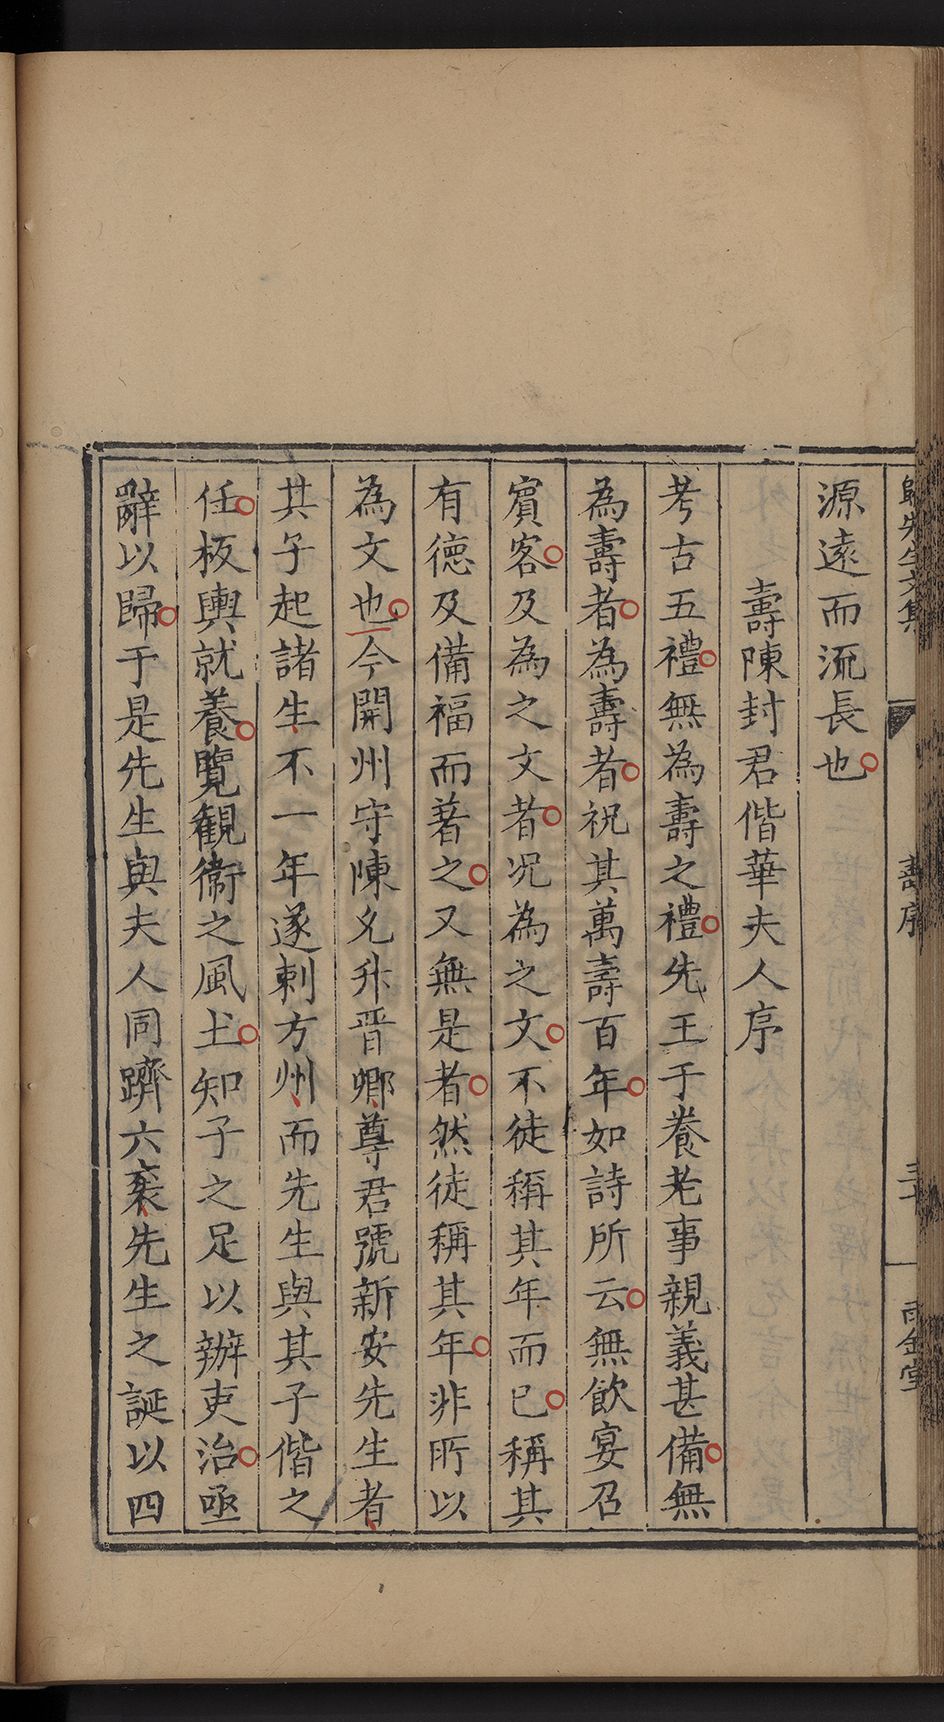 歸先生文集
壽序
雨金堂
源遠而流長也
壽陳封君偕華夫人序
考古五禮無為壽之禮先王于養老事親義甚備無
為壽者為壽者祝其萬壽百年如詩所云無飲宴召
賓客及為之文者况為之文不徒稱其年而已稱其
有德及備福而著之又無是者然徒稱其年非所以
為文也今開州守陳允升晋卿尊君號新安先生者
其子起諸生不一年遂剌方州而先生與其子偕之
任板輿就養覽觀衛之風土知子之足以辦吏治亟
辭以歸于是先生與夫人同躋六袠先生之誕以四